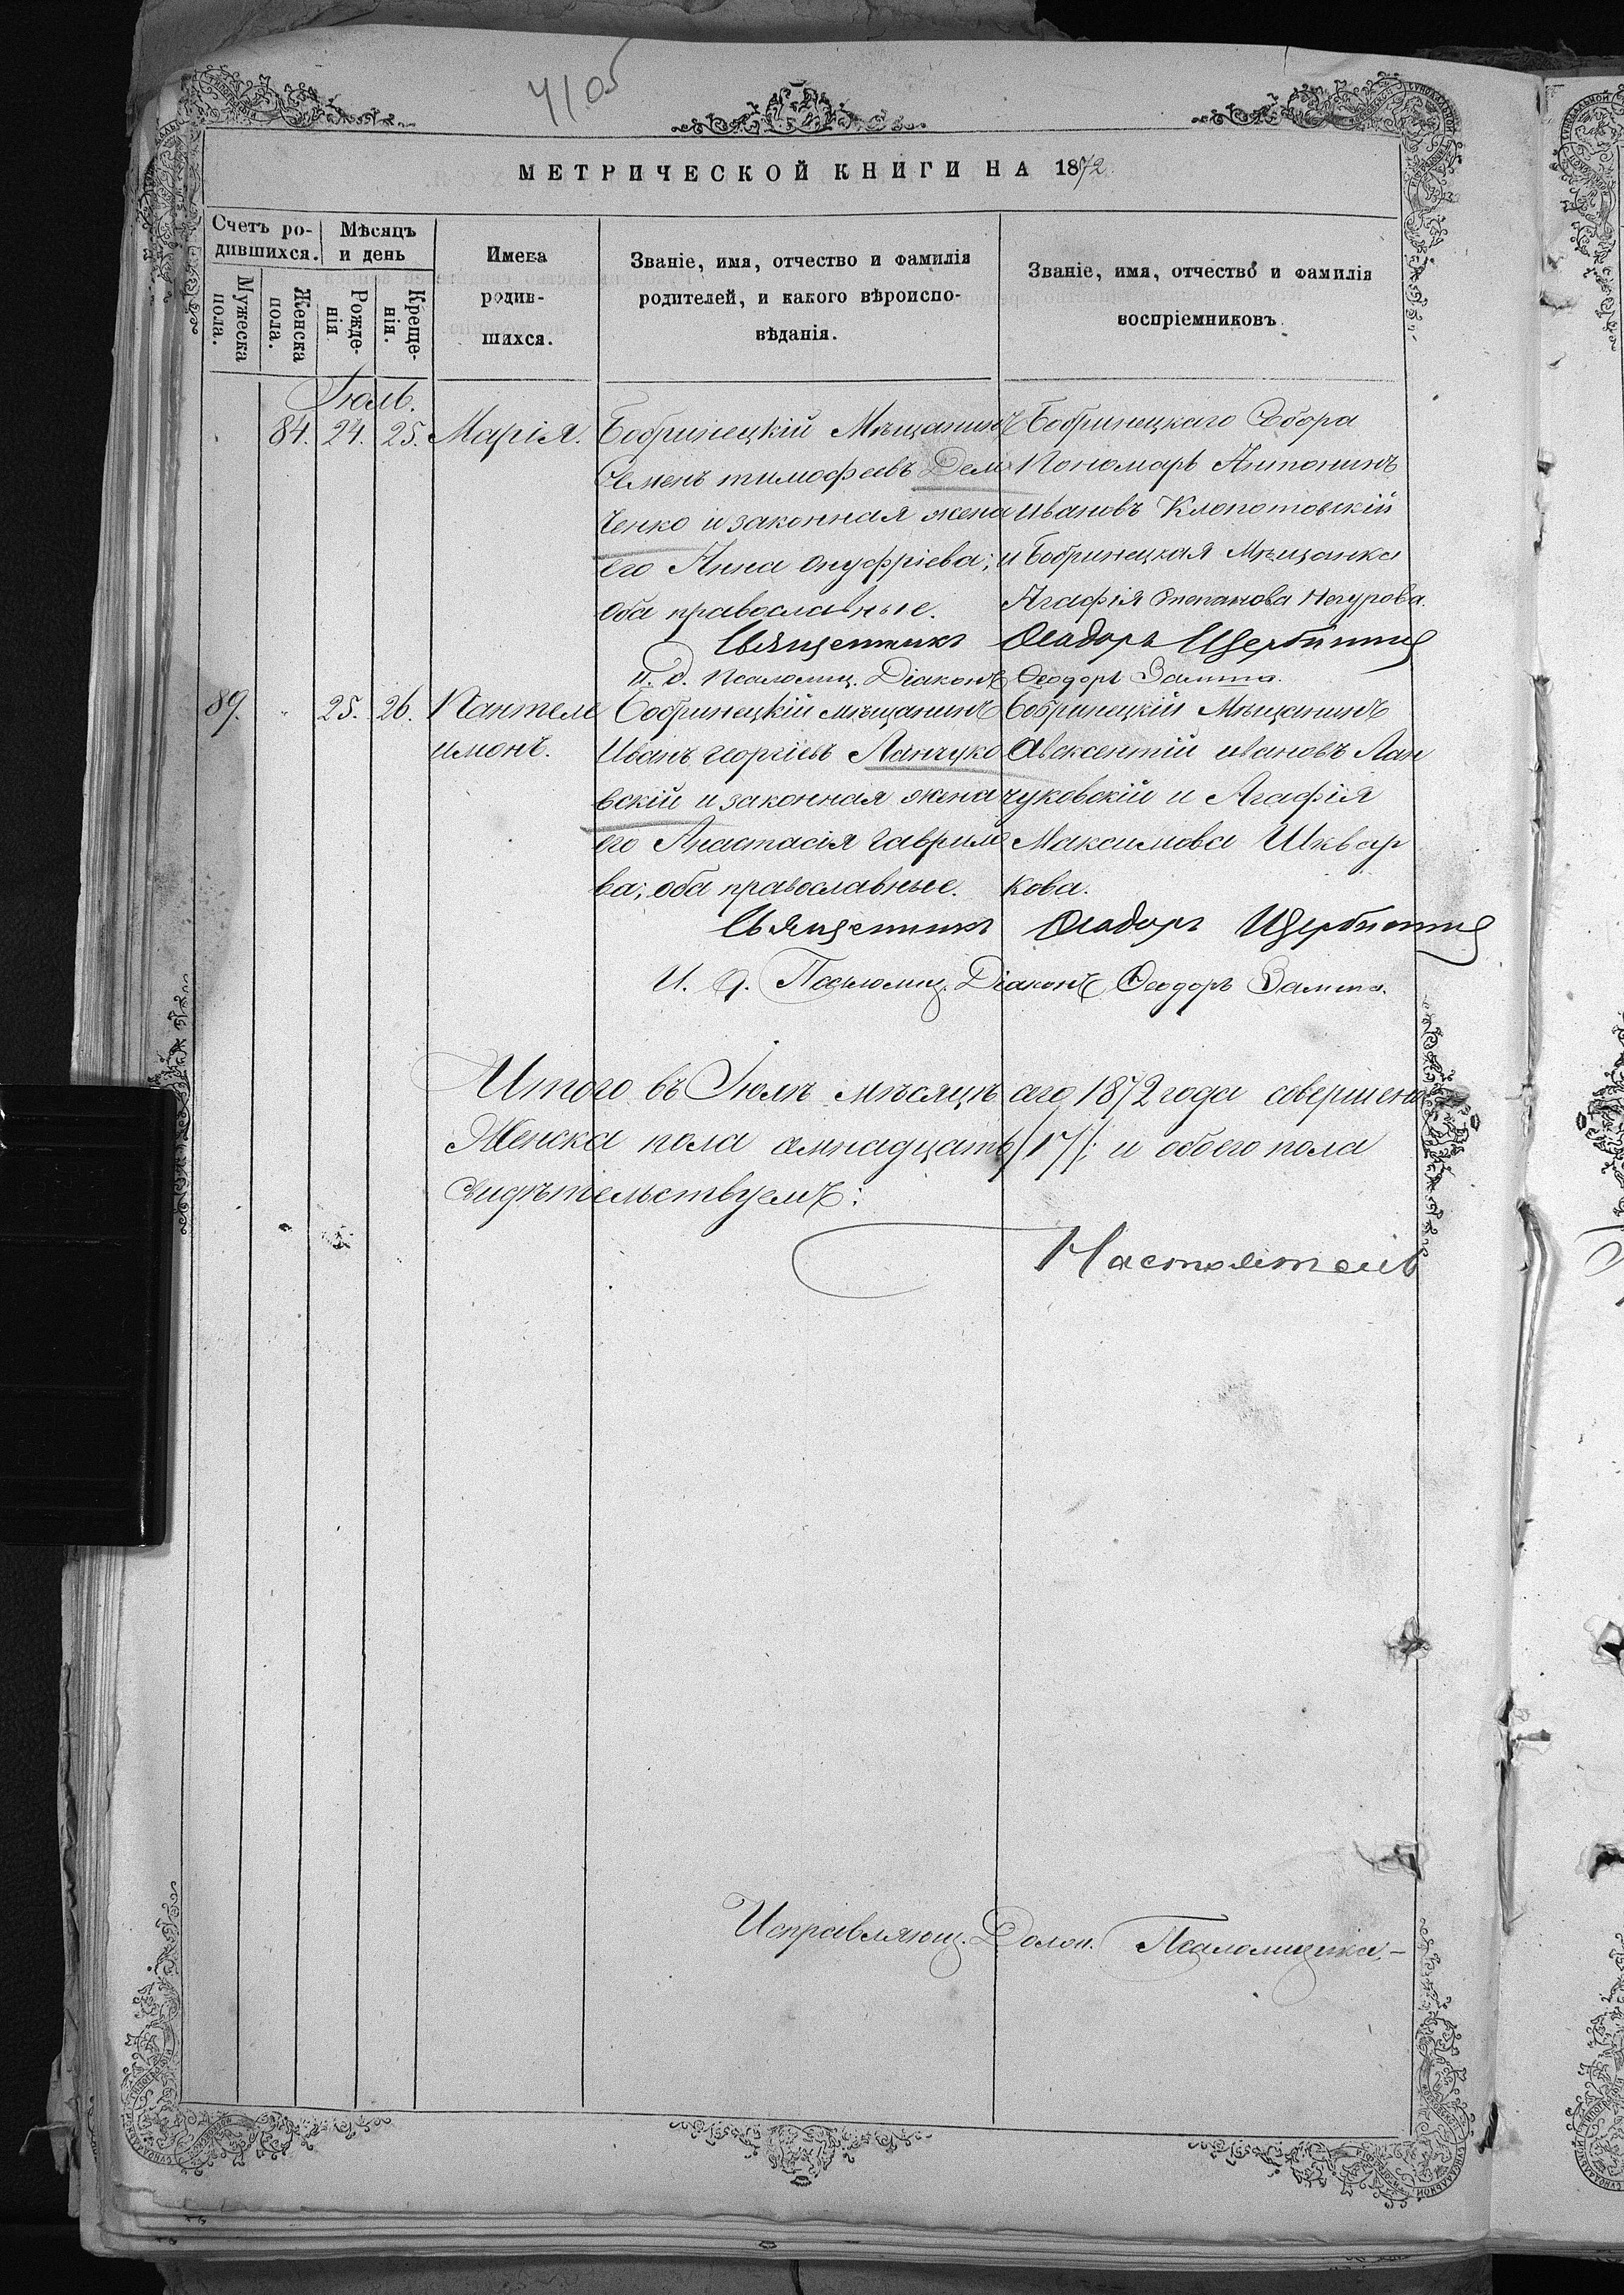 4105
МЕТРИЧЕСКОЙ КНИГИ НА 1872
Счетъ ро-
дившихся.
Мѣсяцъ
и день
Мужеска
пола.
Женска
пола.
Рожде-
нія
Креще-
нія.
Имена
родив-
шихся.
Званіе, имя, отчество и фамилія
родителей, и какого вѣроиспо-
вѣданія.
Званіе, имя, отчество и фамилія
воспріемниковъ.
Іюль.
84. 24. 25. Марія.
Бобринецкій Мѣщанинъ
Семенъ тимофеевъ Дем
ченко и законная жена
его Анна онуфріева;
оба православные.
Бобринецкаго Собора
Пономарь Антонинъ
ивановъ Клопотовскій
и Бобринецкая Мѣщанка
Агафія Степанова Негурова.
Священникъ Ѳеодоръ Щербина
И. д. Псаломщ. Діаконъ Ѳеодоръ
89. " 25. 26. Пантеле
имонъ.
Бобринецкій мѣщанинъ
Иванъ георгіевъ Ланчуко
вскій и законная жена
его Анастасія гаврило
ва; оба православные.
Бобринецкій Мѣщанинъ
Авксентій ивановъ Лан
чуковскій и Агафія
Максимова Шквар
кова.
Священникъ Ѳеодоръ Щербина
И. д. Псаломщ. Діаконъ Ѳеодоръ
Итого въ Іюлѣ мѣсяцѣ сего 1872 года совершено
Женска пола семнадцать /17/; и обоего пола
свидѣтельствуемъ:
Настоятель
Исправляющ. Долж. Псаломщика,-